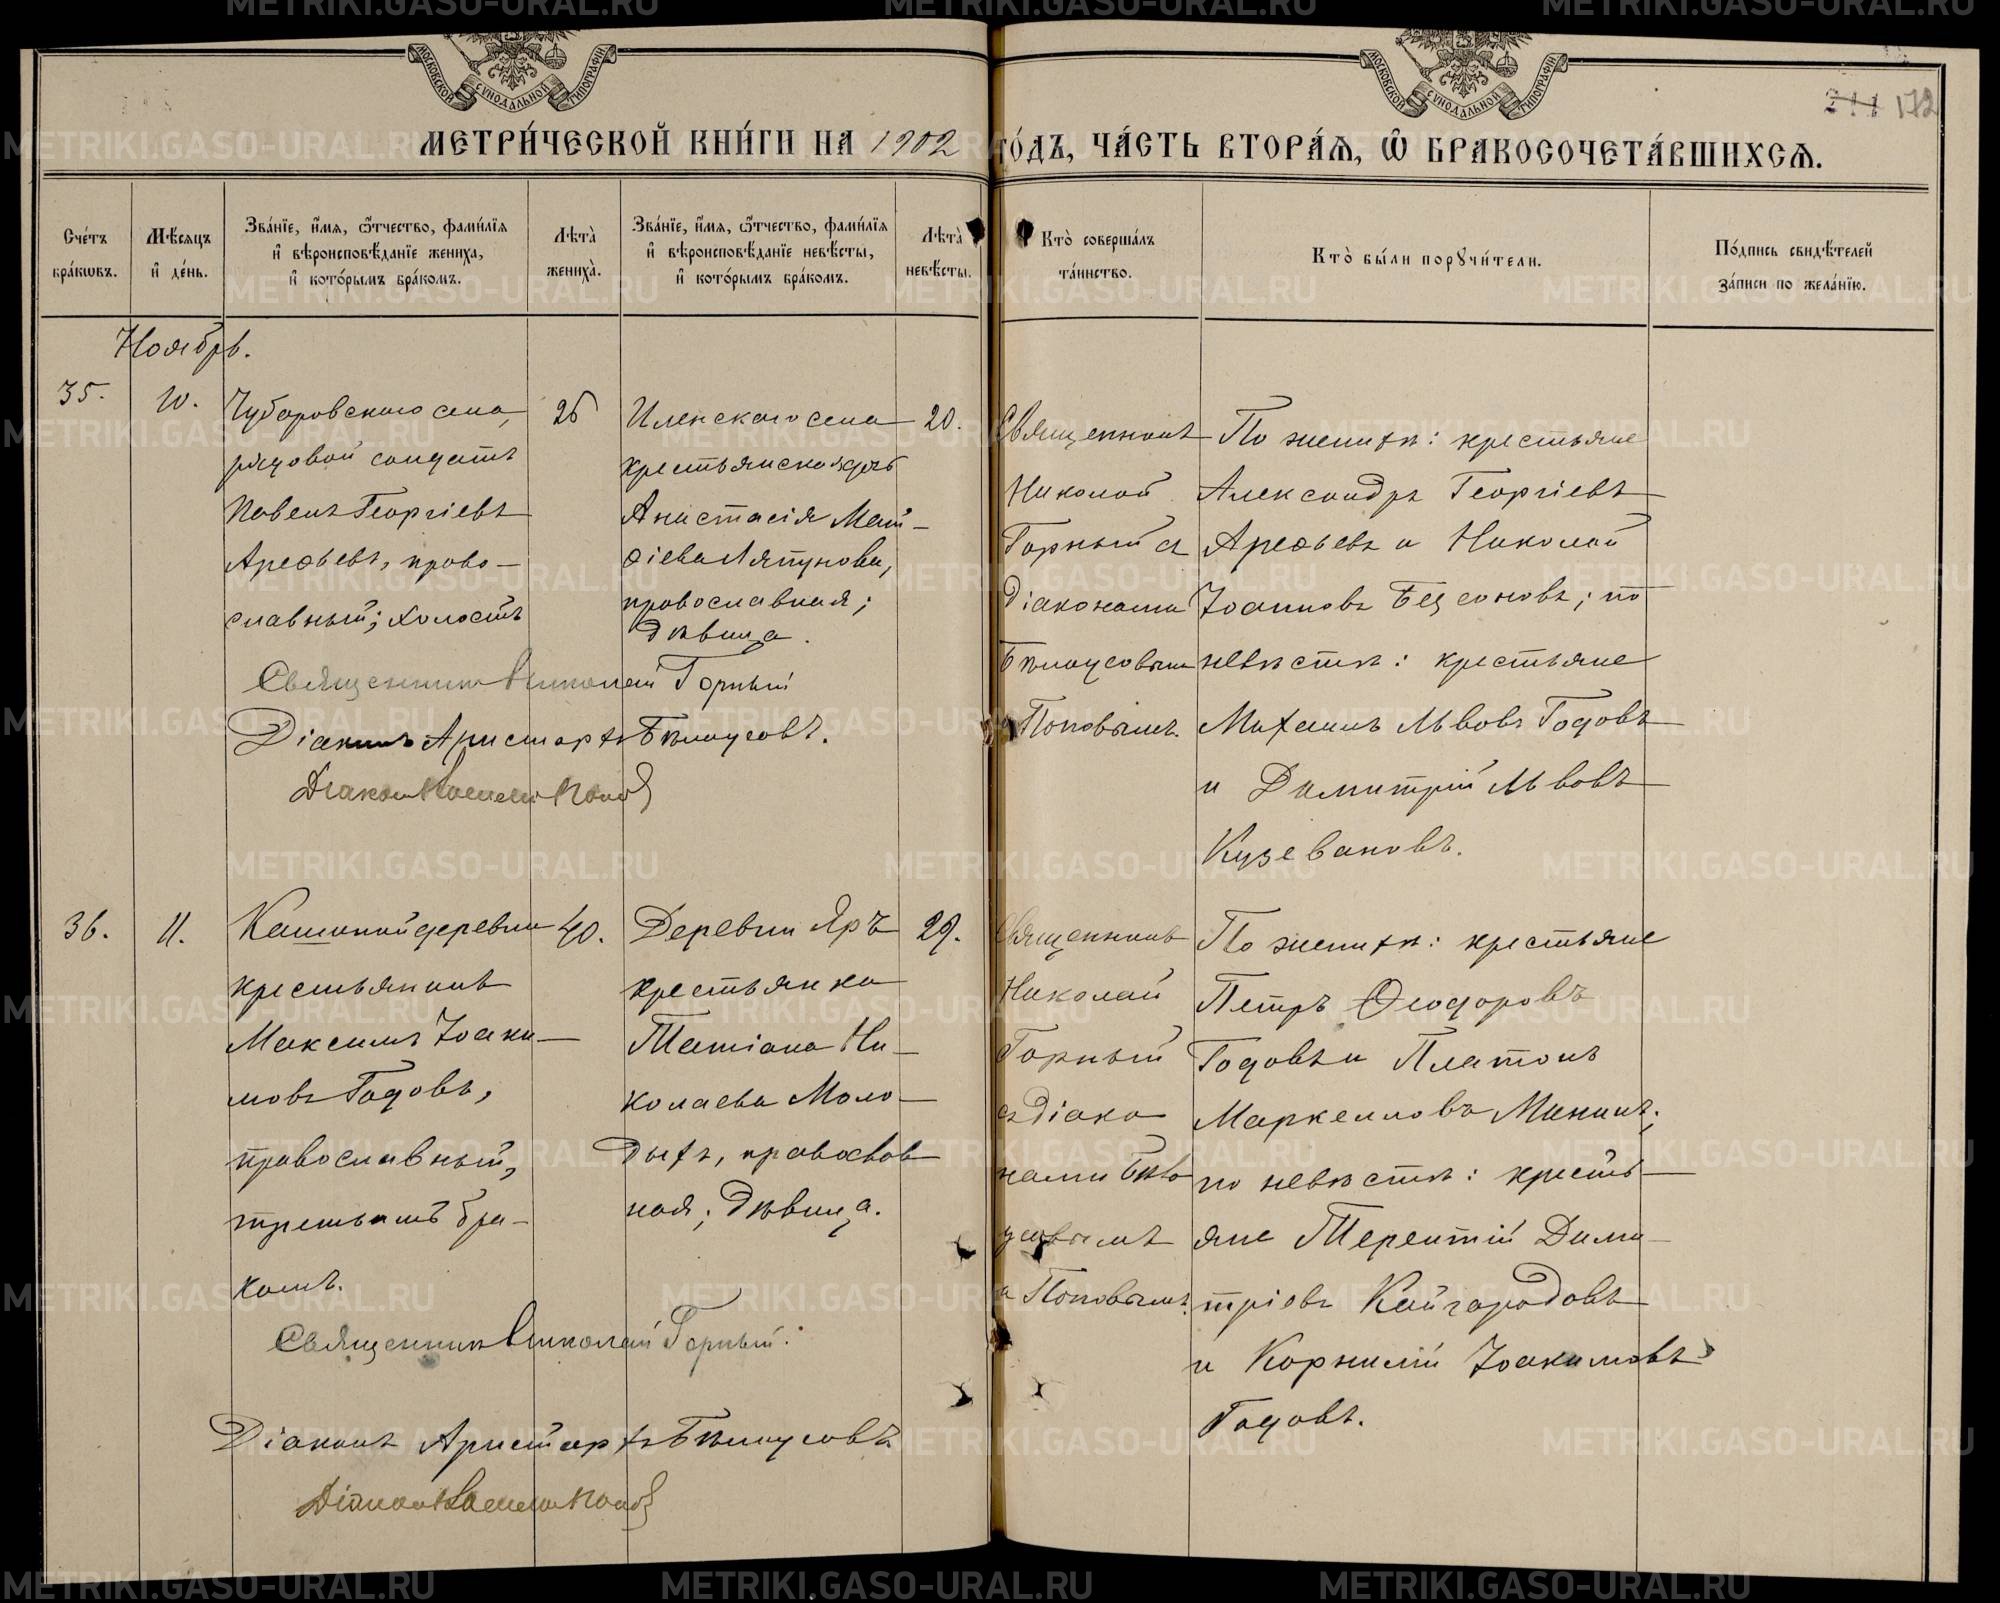 МОСКОВСКОЙ СѴНОДАЛЬНОЙ ТИПОГРАФІИ
МОСКОВСКОЙ СѴНОДАЛЬНОЙ ТИПОГРАФІИ
211 172
МЕТРИ́ЧЕСКОЙ КНИ́ГИ НА 1902 ГО́ДЪ, ЧА́СТЬ ВТОРА́Ѧ, Ѽ БРАКОСОЧЕТА́ВШИХСѦ.
Сче́тъ
бра́кѡвъ.
Мѣ́сѧцъ
и҆ де́нь.
Зва́нїе, и҆́мѧ, ѿ́чество, фами́лїѧ
и҆ вѣроисповѣ́данїе жениха̀,
и҆ кото́рымъ бра́комъ.
Лѣта̀
жениха̀.
Зва́нїе, и҆́мѧ, ѿ́чество, фами́лїѧ
и҆ вѣроисповѣ́данїе невѣ́сты,
и҆ кото́рымъ бра́комъ.
Лѣта̀
невѣ́сты.
Кто̀ соверша́лъ
та́инство.
Кто̀ бы́ли порꙋчи́тели.
По́дпись свидѣ́телей
за́писи по жела́нїю.
Ноябрь.
35.
10.
Чубаровскаго села,
рядовой солдатъ
Павелъ Георгіевъ
Арефьевъ, право-
славный; холостъ
26
Иленскаго села
крестьянская дочь
Анастасія Мат-
ѳіева Ляпунова,
православная;
дѣвица.
20.
Священникъ
Николай
Горный съ
діаконами
Бѣлоусовымъ
и Поповымъ.
По женихѣ: крестьяне
Александръ Георгіевъ
Арефьевъ и Николай
Іоанновъ Бессоновъ; по
невѣстѣ: крестьяне
Михаилъ Львовъ Годовъ
и Димитрій Львовъ
Кузевановъ.
Священникъ Николай Горный
Діаконъ Аристархъ Бѣлоусовъ.
Діаконъ Поповъ
36.
11.
Кашиной деревни
крестьянинъ
Максимъ Іоаки-
мовъ Годовъ,
православный,
третьимъ бра-
комъ.
40.
Деревни Яръ
крестьянка
Татіана Ни-
колаева Моло-
дыхъ, православ
ная; дѣвица.
29.
Священникъ
Николай
Горный
съ діако
нами Бѣло
усовымъ
и Поповымъ.
По женихѣ: крестьяне
Петръ Ѳеодоровъ
Годовъ и Платонъ
Маркелловъ Мининъ;
по невѣстѣ: кресть-
яне Терентій Дими-
тріевъ Кайгородовъ
и Корнилій Іоакимовъ
Годовъ.
Священникъ Николай Горный.
Діаконъ Аристархъ Бѣлоусовъ.
Діаконъ Поповъ
METRIKI.GASO-URAL.RU